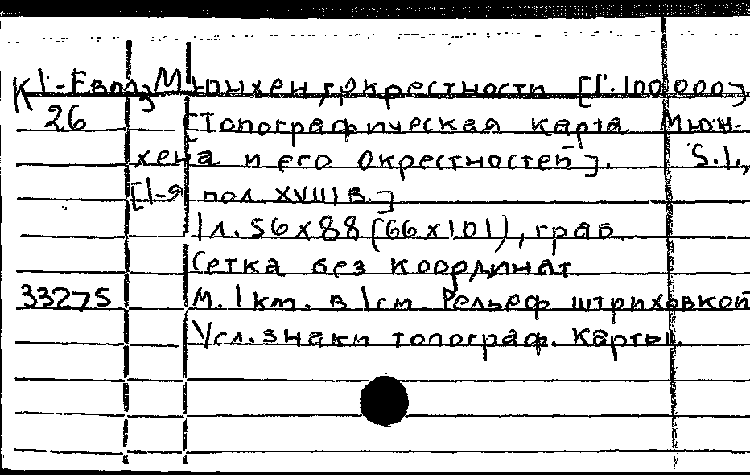 К1-Евр 3 Мюнхен, окрестности [1:100 000]
26 [Топографическая карта Мюн-
хена и его окрестностей]. S.l.,
[1-я пол. XVIII в.]
1 л. 56x88 (66x101), грав.
Сетка без координат
33275 М. 1 км. в 1 см. Рельеф штриховкой
Усл. знаки топограф. карты.